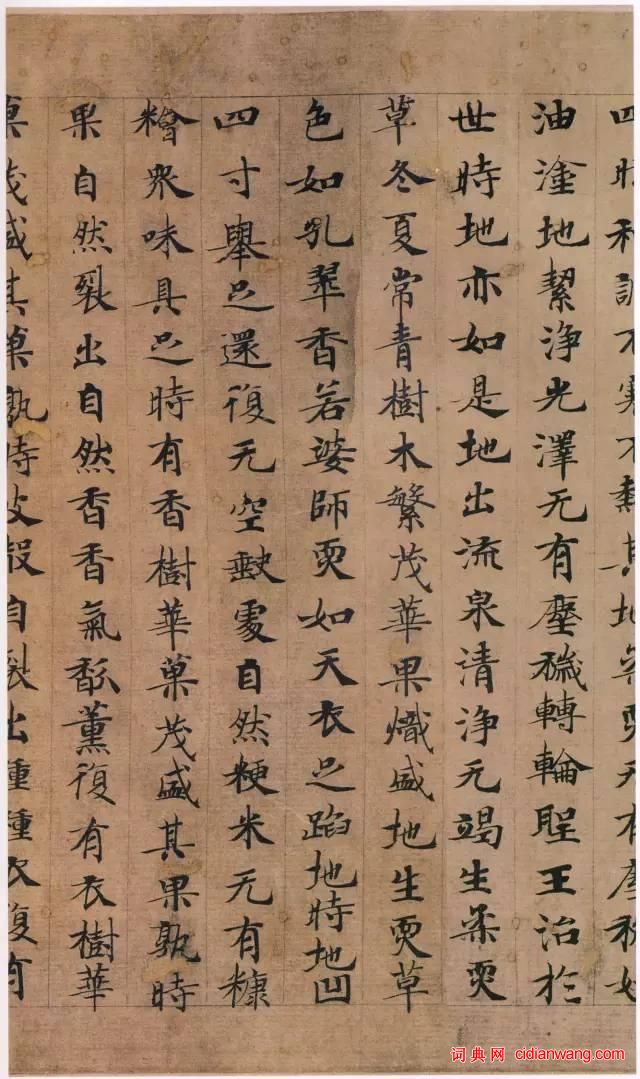 四時和調不寒不熱其地耎无有塵穢如
油塗地絜淨光澤无有塵穢轉輪聖王治於
世時地亦如是地出流泉清淨无竭生柔耎
草冬夏常青樹木繁茂華果熾盛地生耎草
色如孔翠香若婆師耎如天衣足蹈地時地凹
四寸舉足還復无空缺處自然粳米无有糠
糩眾味具足時有香樹華菓茂盛其果熟時
果自然裂出自然香香氣薰復有衣樹華
菓茂盛其菓熟時皮殼自裂出種種衣復有
词典网 cidianwang.com